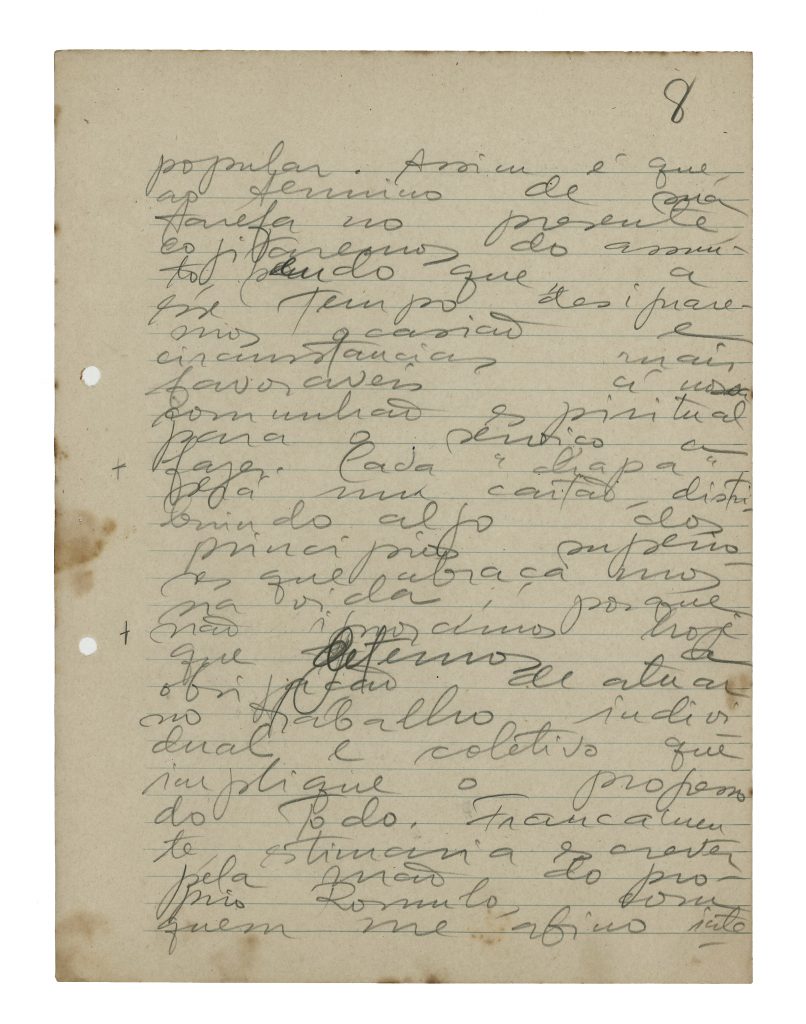 8
popular. Assim é que,
ao termino de sua
tarefa no presente
cojitaremos do assun-
to, sendo que a
êsse tempo desijnare-
mos ocasião e
circunstancias mais
favoraveis á nossa
comunhão espiritual
para o serviço a
fazer. Cada "chapa"
será um cartão distri-
buindo aljo dos
principios superio-
res que abraçamos
na vida, porque
não ijnoramos hoje
que temos a
obrijação de atuar
no trabalho indivi
dual e coletivo que
implique o progresso
do Todo. Francamen
te, estimaria escrever
pela mão do pro-
prio Romulo, com
quem me afino into